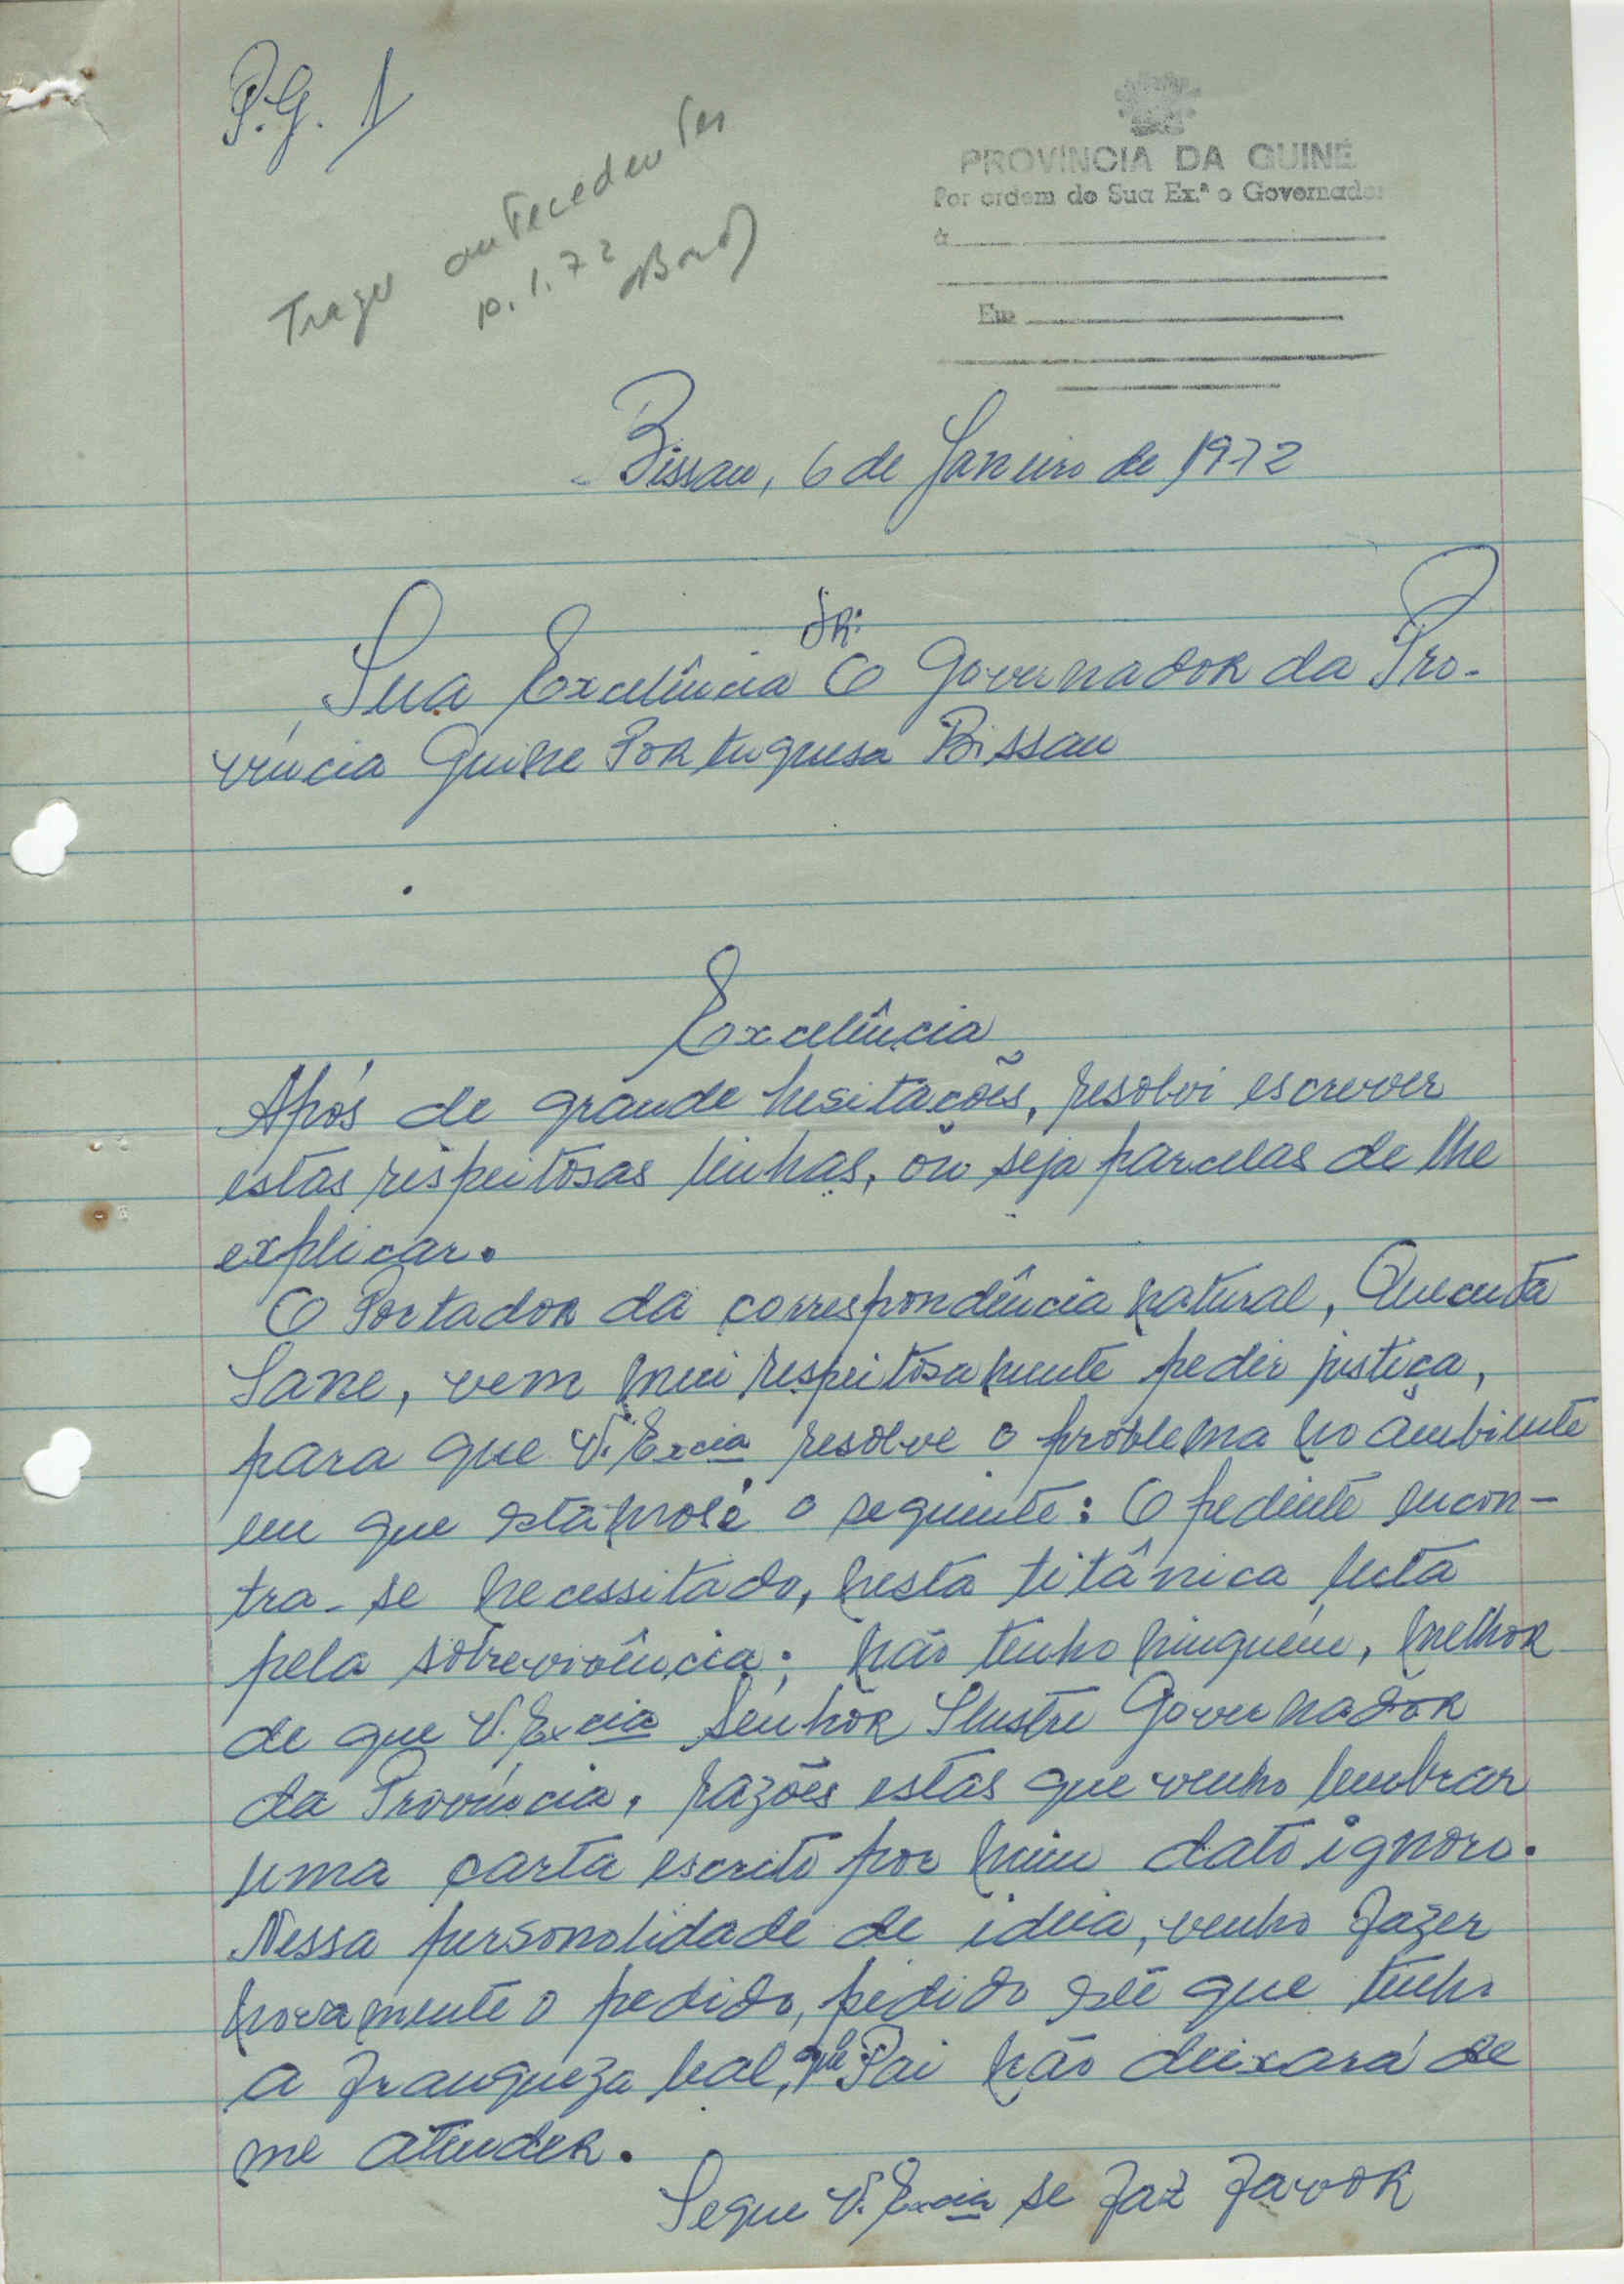 P.G. 1
Trazer antecedentes
10.1.72
PROVÍNCIA DA GUINÉ
Por ordem de Sua Ex.ª o Governador
à
Em
Bissau, 6 de Janeiro de 1972
SR:
Sua Excelência O Governador da Pro-
víncia Guine Portuguesa Bissau
Excelência
Após de grande hesitações, resolvi escrever
estas respeitosas linhas, ou seja parcelas de lhe
explicar.
O Portador da correspondência natural, Quecuta
Sane, vem mui respeitosamente pedir justiça,
para que V. Excia resolve o problema no ambiente
em que estámos é o seguinte: O pediente encon-
tra-se necessitado, nesta titânica luta
pela sobrevivência; não tenho ninguém, melhor
de que V. Excia Senhor Ilustre Governador
da Província, razões estas que venho lembrar
uma carta escrito por mim dato ignoro.
Nessa personolidade de ideia, venho fazer
novamente o pedido, pedido este que tenho
a franqueza leal, que Pai não deixará de
me atender.
Segue V. Excia se faz favor